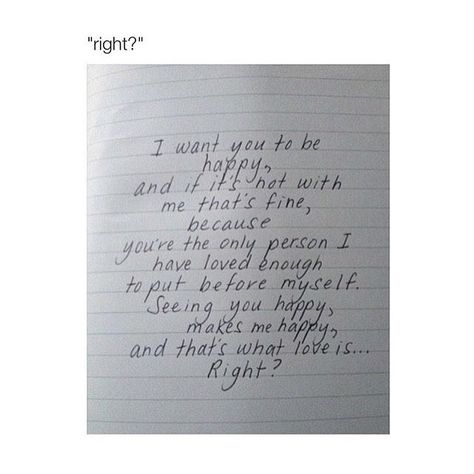 "right?"
I want you to be
happy,
and if it's not with
me that's fine,
because
you're the only person I
have loved enough
to put before myself.
Seeing you happy,
makes me happy,
and that's what love is...
Right?